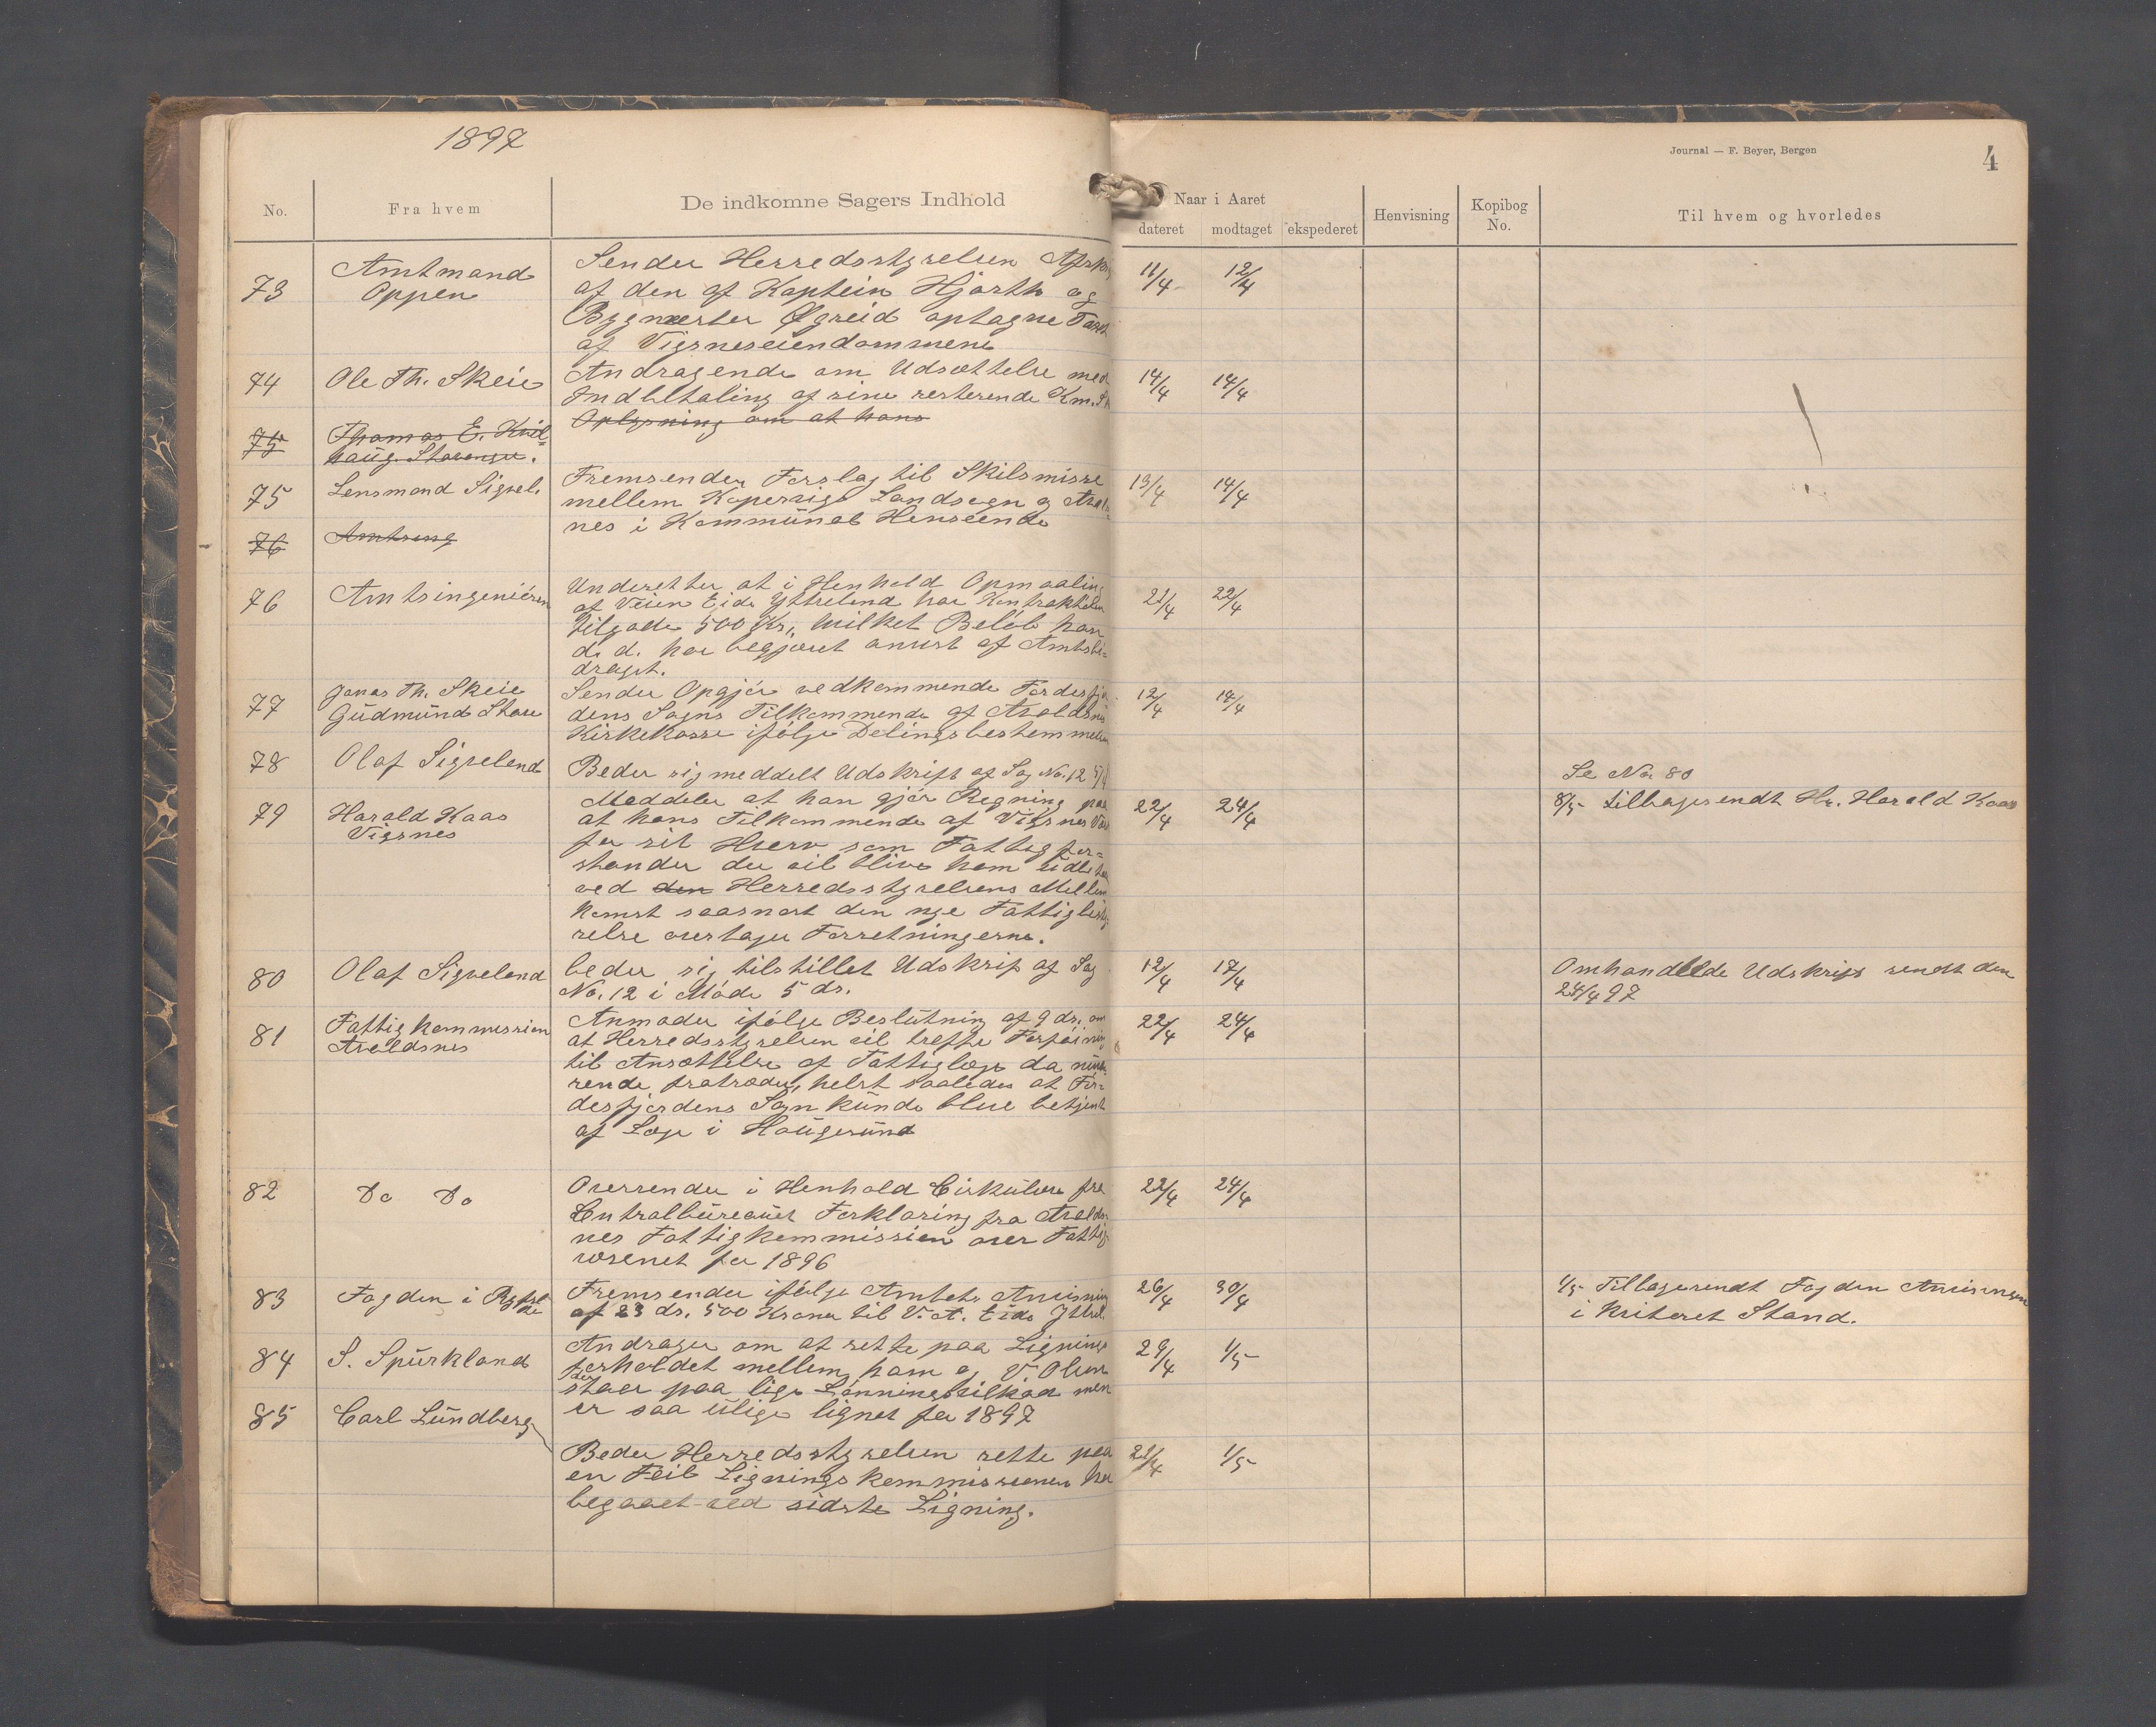 1897
Journal — F. Beyer, Bergen
4
No. Fra hvem De indkomne Sagers Indhold Naar i Aaret Henvisning Kopibog No. Til hvem og hvorledes
dateret modtaget ekspederet
73 Amtmand Oppen
Sender Herredsstyrelsen
af den af Kaptein Hjorth og
Bygmester Øgreid optagne Taxt
af Vigsneseiendommene
11/4 12/4
74 Ole Th. Skeie
Andragende om Udsættelse med
Indbetaling af sine resterende Km. Sk
14/4 14/4
75 Thomas E. Kvil=
haug. Stavanger.
Oplysning om at hans
75 Lensmand Sigvel.
Fremsender Forslag til Skilsmisse
mellem Kopervigs Landsogn og Avalds=
nes i Kommunal Henseende
13/4 14/4
76 Amtsing
76 Amtsingeniøren
Underetter at i Henhold Opmaaling
af Veien Eide Yttreland har Kontraktøren
tilgode 500 Kr., hvilket Beløb han
d. d. har begjæret anvist af Amtsbi=
draget.
21/4 22/4
77 Jonas Th. Skeie
Gudmund Stave
Sender Opgjør vedkommende Førdesfjor
dens Sogns Tilkommende af Avaldsnes
Kirkekasse ifølge Delingsbestemmelsen
12/4 14/4
78 Olaf Sigveland
Beder sig meddelt Udskrift af Sag No. 12 5/4
Se No 80
79 Harald Kaas
Vigsnes
Meddeler at han gjør Regning paa
at hans Tilkommende af Vigsnes Værk
for sit Hverv som Fattigfor=
stander der vil blive ham udbetalt
ved den Herredsstyrelsens Mellem
komst saasnart den nye Fattigbesty
relse overtager Forretningerne.
22/4 24/4
8/5 tilbagesendt Hr. Harald Kaas
80 Olaf Sigveland
beder sig tilstillet Udskrift af Sag
No. 12 i Møde 5 ds.
12/4 17/4
Omhandlede Udskrift sendt den
24/4 97
81 Fattigkommission
Avaldsnes
Anmoder ifølge Beslutning af 9 ds. om
at Herredsstyrelsen vil træffe Forføining
til Ansættelse af Fattiglæge da nuvæ=
rende fratræder, helst saaledes at Før=
desfjordens Sogn kunde blive betjent
af Læge i Haugesund
22/4 24/4
82 Do Do
Oversender i Henhold Cirkulære fra
Centralbureauet Forklaring fra Avalds=
nes Fattigkommission over Fattig
væsenet for 1896
22/4 24/4
83 Fogden i Ryfylke
Fremsender ifølge Amtets Anvisning
af 23 ds. 500 Kroner til V. at. Eide Yttrel.
26/4 30/4
1/5 Tilbagesendt Fogden Anvisningen
i kviteret Stand.
84 S. Spurkland
Andrager om at rette paa Lignings
forholdet mellem ham og V Olsen
der staar paa lige Lønningsvilkaar men
er saa ulige lignet for 1897
29/4 1/5
85 Carl Lundberg
Beder Herredsstyrelsen rette paa
en Feil Ligningskommissionen har
begaaet ved sidste Ligning.
21/4 1/5